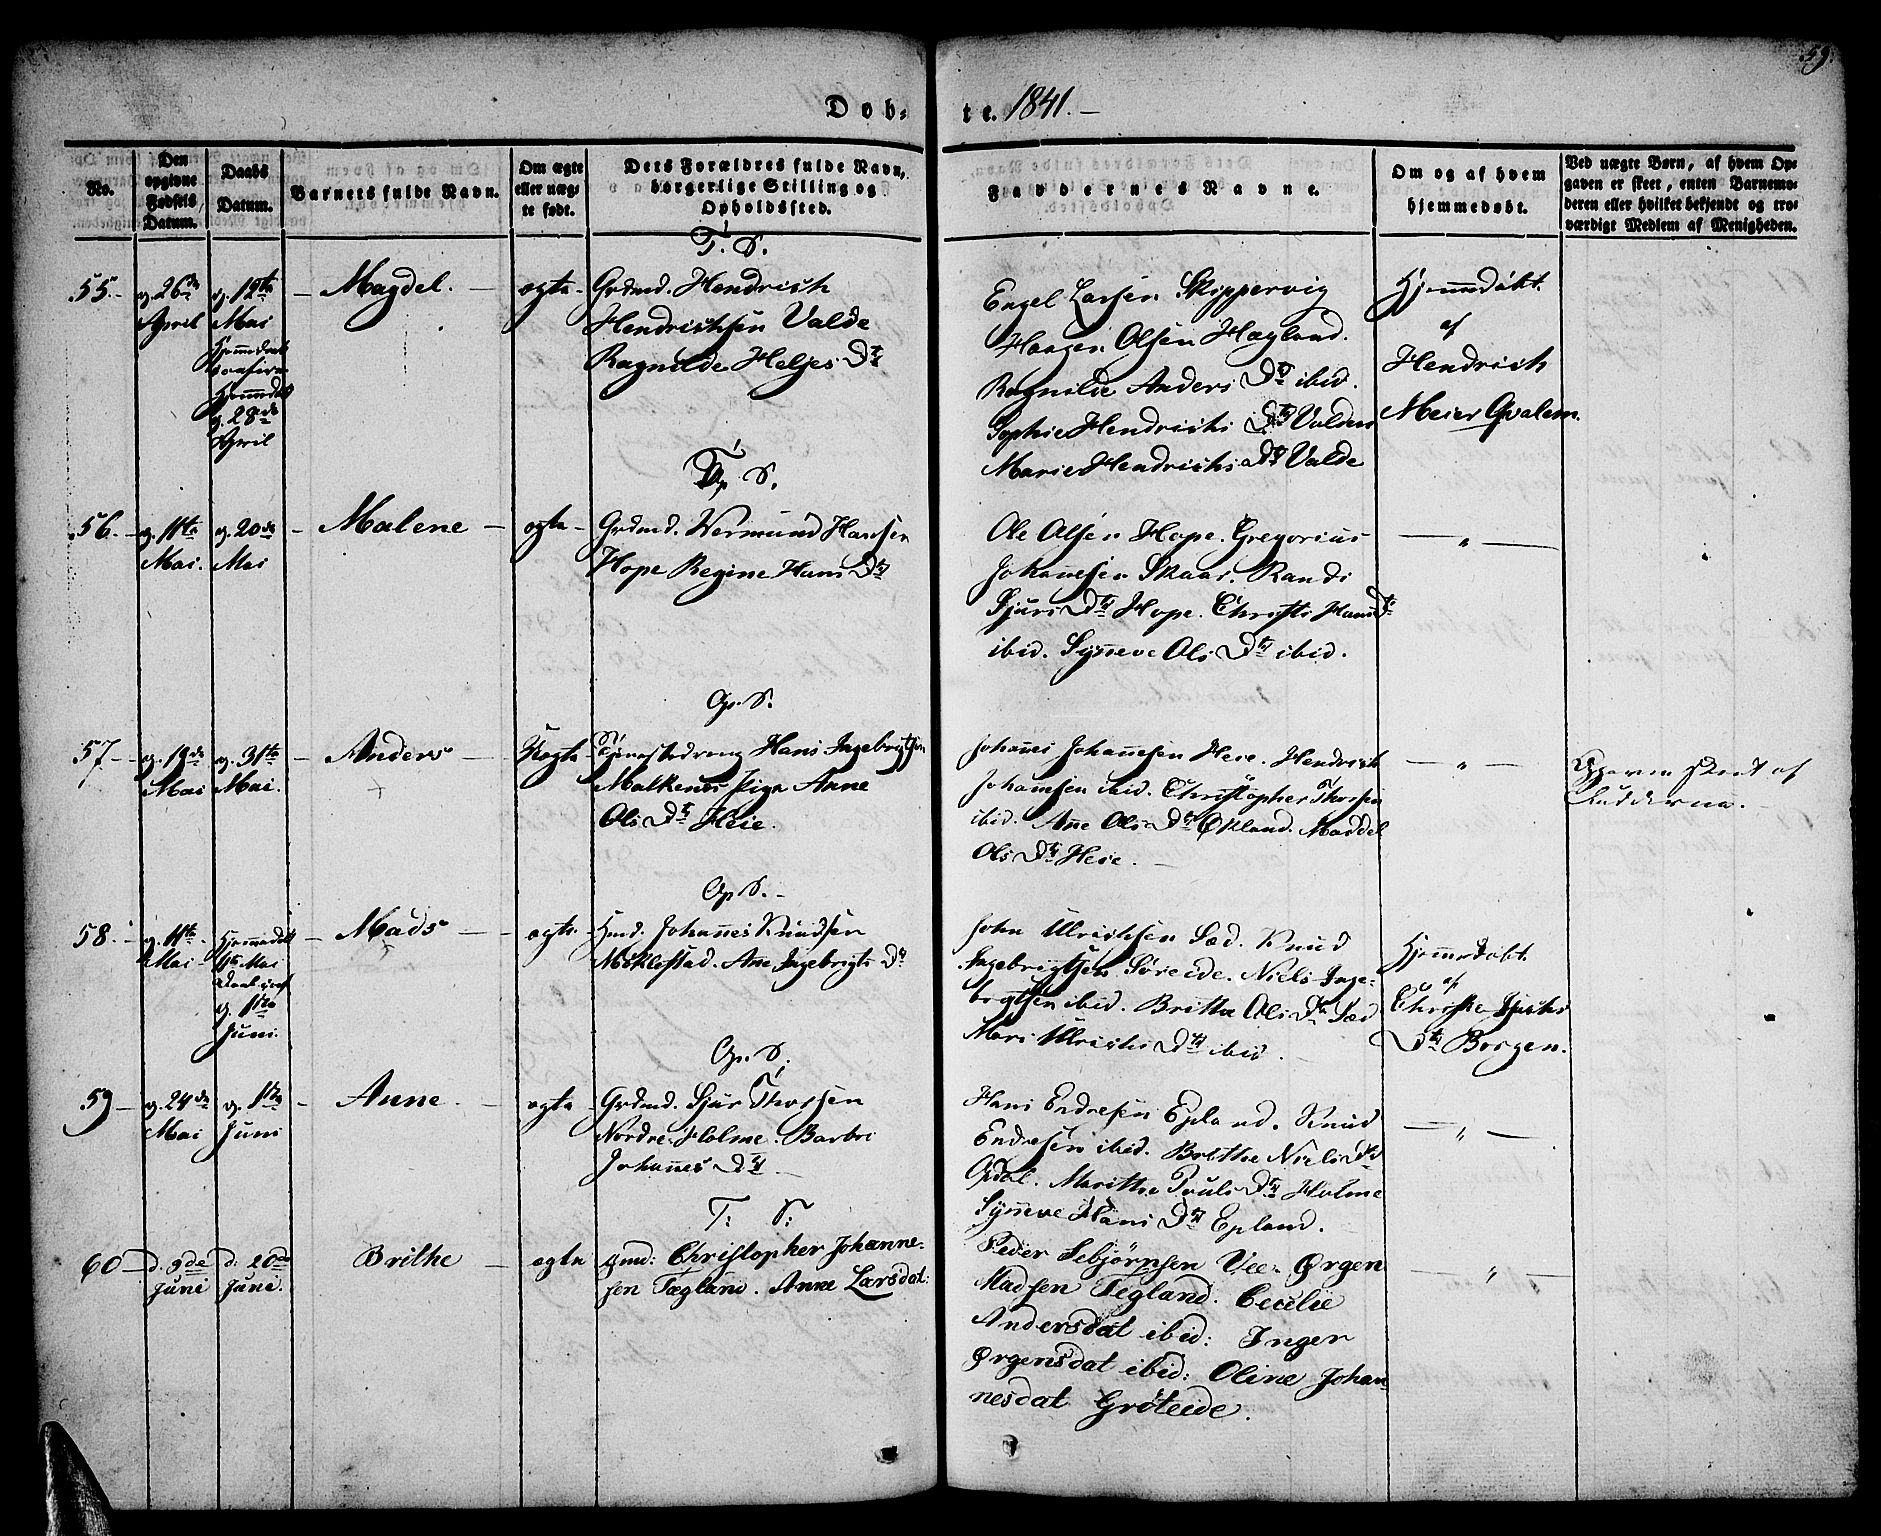 59.
Døb- te. 1841.-
No.
Den opgivne Fødsels Datum.
Daabs Datum.
Barnets fulde Navn.
Om ægte eller uægte født.
Dets Forældres fulde Navn, borgerlige Stilling og Opholdssted.
Faddernes Navne.
Om og af hvem hjemmedøbt.
Ved uægte Børn, af hvem Opgaven er skeet, enten Barnemoderen eller hvilket bekjendt og troværdigt Medlem af Menigheden.
T. S.
55.
d. 26de
April
d. 12te
Mai
Hjemmedaab
28de
April
Magdel.
ægte
Grdmd. Hendrich
Hendrichsen Valde
Ragnilde Heljes Dtr
Engel Larsen Skippervig
Haagen Olsen Hagland.
Ragnilde Anders Dtr ibid.
Sophie Hendrichs Dtr Valden
Marie Hendrichs Dtr Valde
Hjemmdøbt
af
Hendrich
Meier Qvalem.
S.
56.
d. 11te
Mai.
d. 20de
Mai
Malene
ægte
Grdmd. Wermund Hansen
Hope Regine Hans Dtr
Ole Olsen Hope. Gregorius
Johannesen Skaar. Randi
Sjurs Dtr Hope. Christi Hans Dtr
ibid. Synneve Ols Dtr ibid.
Op. S.
57
d. 19de
Mai
d. 31te
Mai.
Anders
Uægte
Tjenestedreng Hans Ingebrigtsen
Malkenes Pige Anne
Ols Dtr Heie.
Johannes Johannesen Heie. Hendrich
Johannesen ibid. Christopher Thorsen
ibid. Anne Ols Dtr Økland. Maddel
Ols Dtr Heie.
Opgaven skeet af
Fadderne.
Op S.
58.
d. 11te
Mai
Hjemmedøbt
Mai
d. 1ste
Juni.
Mads
ægte
Hmd. Johannes Knudsen
Møklestad. Ane Ingebrigts Dtr
John Ulrichsen Sæd. Knud
Ingebrigtsen Søreide. Niels Inge-
brigtsen ibid. Britha Ols Dtr Sæd
Mari Ulrichs Dtr ibid.
Hjemmedøbt
af
Christie
Dtr Borgen.
Op. S.
59
d. 24de
Mai
d. 1ste
Juni
Anne
ægte
Grdmd. Sjur Thorsen
Nordre Holme. Barbri
Johannes Dtr
Hans Endresen Epland. Knud
Endresen ibid. Brithe Niels Dtr
Opdal. Marithe Pouls Dtr Holme
Synneve Hans Dtr Epland.
T: S:
60
d. 9de
Juni
d: 20de
Juni.
Brithe
ægte
gmd: Christopher Johanne-
sen Tægland. Anne Larsdat:
Peder Sebjörnsen Vee. Ørgen
Madsen Tegland. Cecelie
Andersdat ibid: Inger
Ørgensdat ibid: Oline Johan-
nesdat Gröteide.